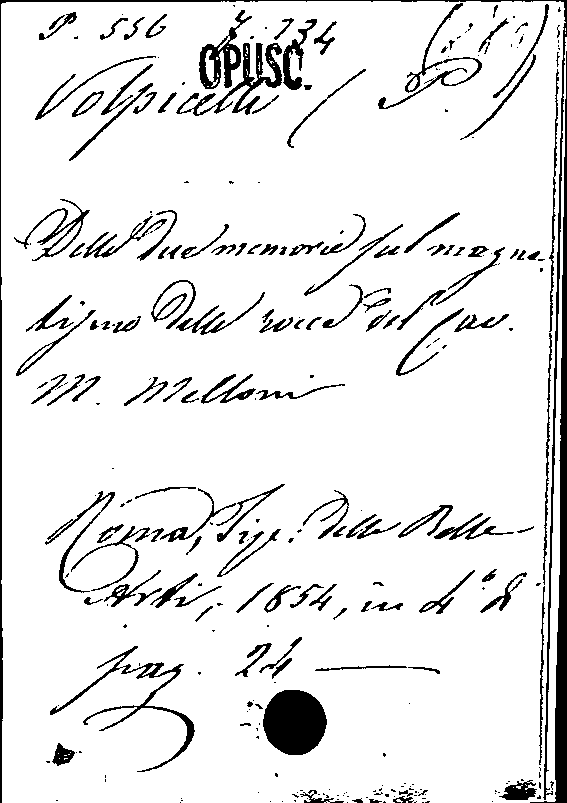 P. 556
OPUSC.
Volpicelli (P.)
Delle due memorie sul magne-
tismo delle rocce del Cav.
M. Melloni
Roma, Tipo. delle Belle
Arti, 1854, in 4° di
pag. 24